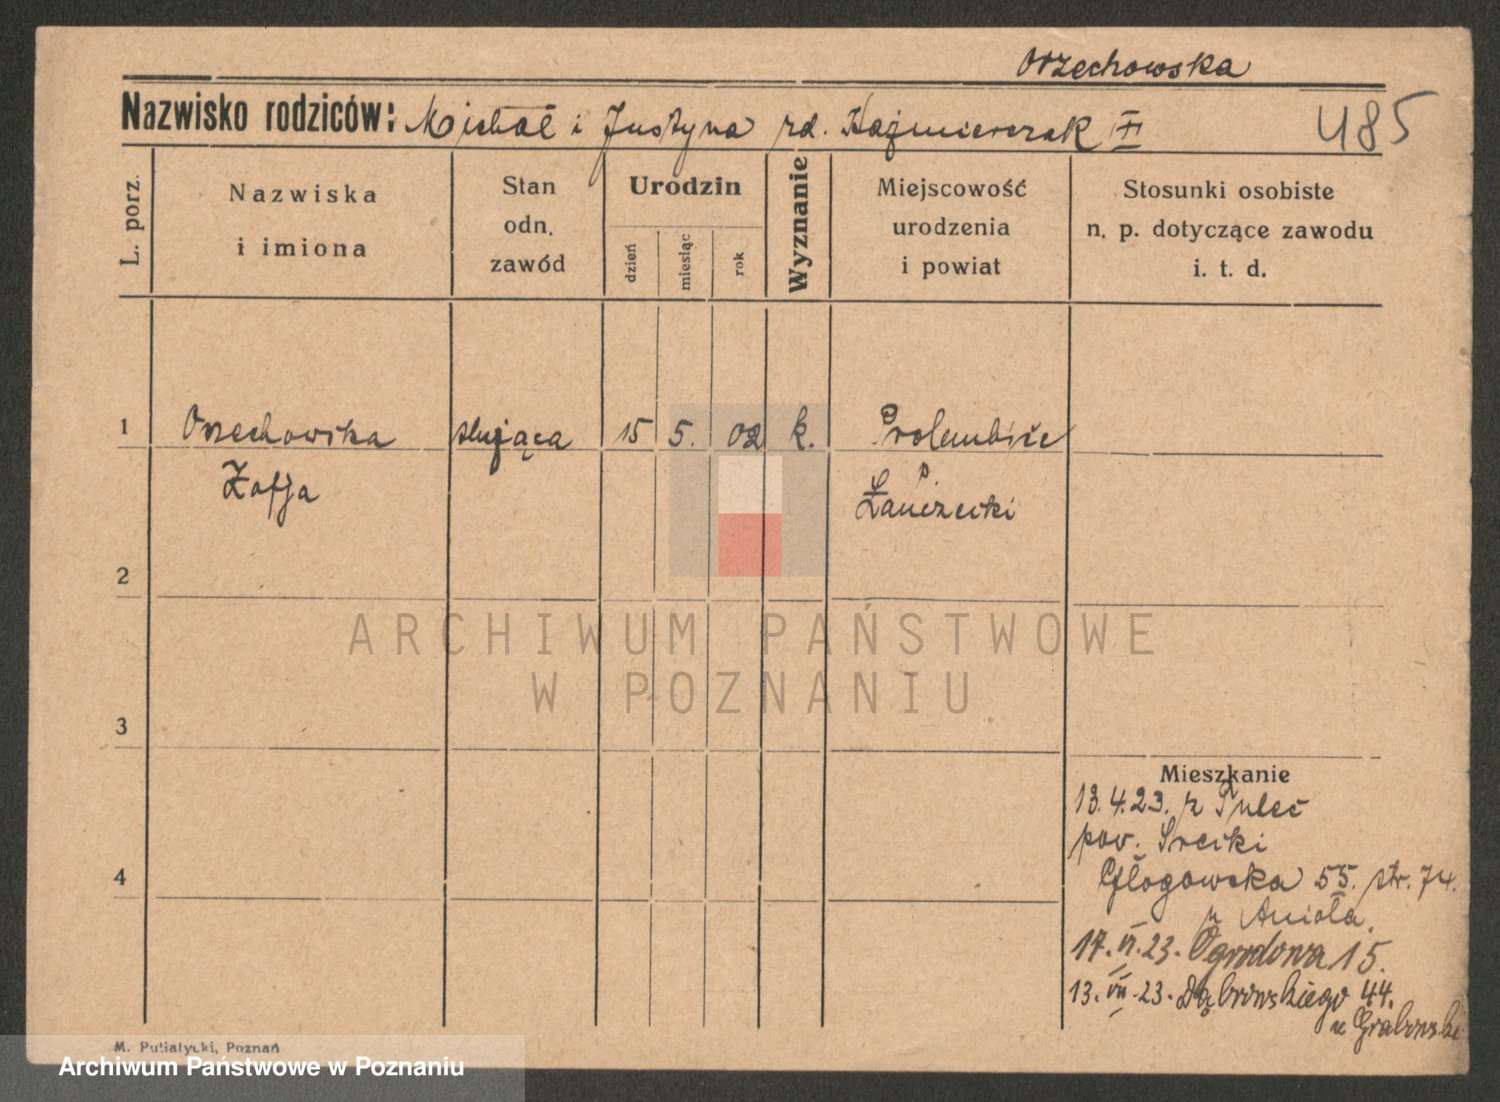 Orzechowska
Nazwisko rodziców: Michał i Justyna rd. Kaźmierczak
485
L. porz.
Nazwiska
i imiona
Stan
odn.
zawód
Urodzin
dzień
miesiąc
rok
Wyznanie
Miejscowość
urodzenia
i powiat
Stosunki osobiste
n. p. dotyczące zawodu
i. t. d.
1
Orzechowska
Zofja
służąca
15
5.
02
k.
p.
2
ARCHIWUM PAŃSTWOWE
W POZNANIU
3
4
Mieszkanie
13.4.23. z
pow.
Głogowska 55. str. 74.
u Anioła.
17. VI. 23. Ogrodowa 15.
13. VII. 23. Dąbrowskiego 44.
u Grabowski
M. Putiatycki, Poznań
Archiwum Państwowe w Poznaniu